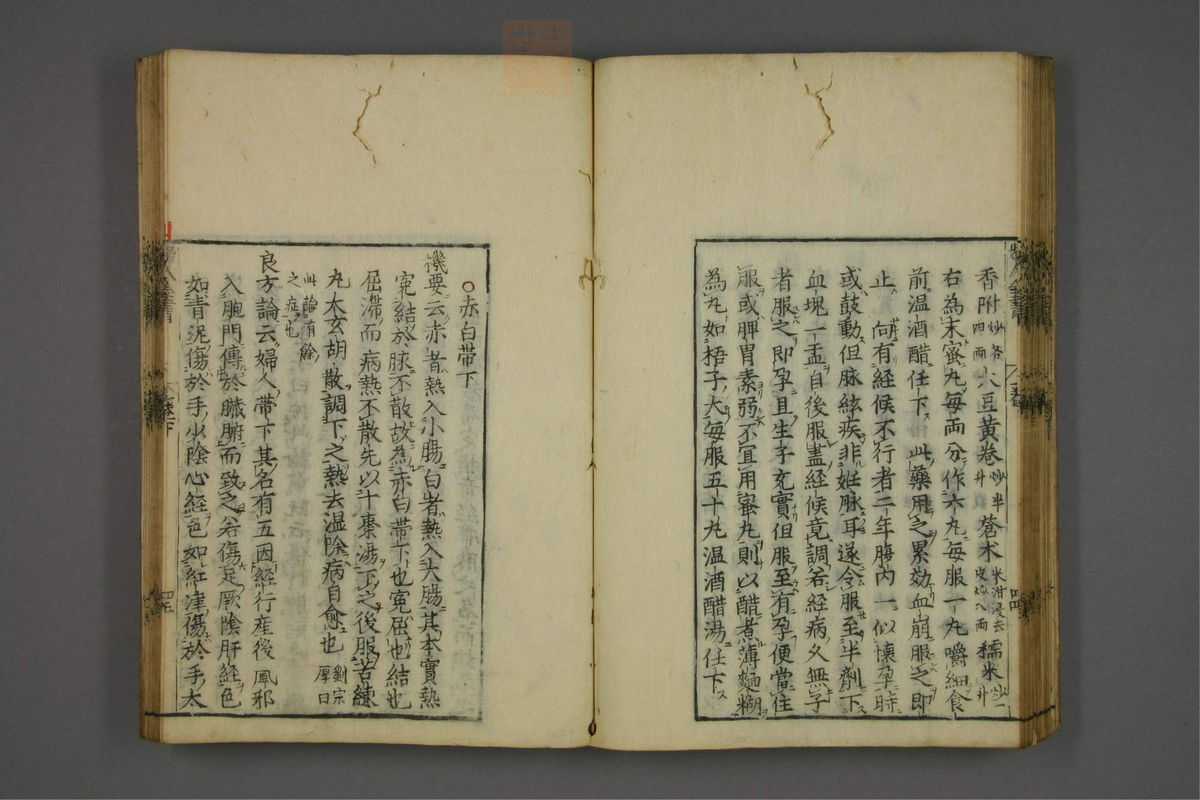 香附炒各四兩大豆黃卷炒半升蒼朮米泔浸去皮炒八兩糯米炒一升
右為末蜜丸每両分作六丸每服一丸嚼細食
前温酒醋任下此藥用之累効血崩服之即
止向有經候不行者二年膓內一似懷孕時
或鼓動但脉絃疾非妊脉耳遂令服至半劑下
血塊一盂自後服盡經候竟調若經病久無子
者服之即孕且生子充實但服至有孕便當住
服或脾胃素弱不宜用蜜丸則以醋煮薄麵糊
為丸如梧子大每服五十丸温酒醋湯任下
○赤白帶下
機要云赤者熱入小腸白者熱入大腸其本實熱
寃結於脉不散故為赤白帶下也寃屈也結也
屈滯而病熱不散先以十棗湯下之後服苦練
丸大玄胡散調下之熱去温除病自愈也劉宗厚曰
此論有餘之症也
良方論云婦人帶下其名有五因經行産後風邪
入胞門傳於臟腑而致之若傷足厥陰肝經色
如青泥傷於手少陰心經色如紅津傷於手太